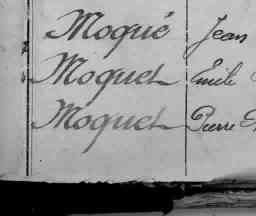 Moqué Jean
Moquet Émile
Moquet Pierre